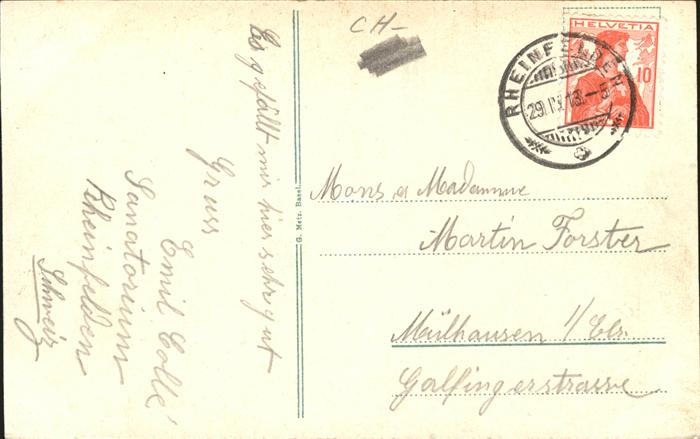 Es gefällt mir hier sehr gut
Gruss
Emil Collé
Sanatorium
Rheinfelden
Schweiz
G. Metz, Basel.
CH-
HELVETIA
10
RHEINFELDEN
Mons. et Madamme
Martin Forster
Mülhausen i/Els.
Galfingerstrasse